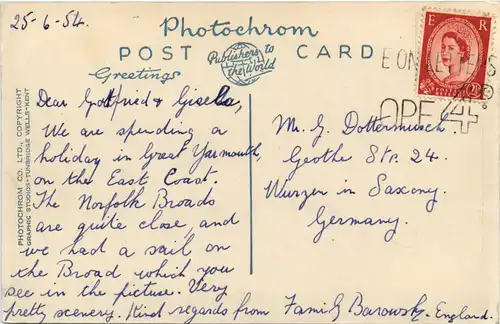 25-6-54.
Photochrom
POST CARD
Publishers to
the World
Greetings
E R
Dear Gottfried & Gisela,
We are spending a
holiday in Great Yarmouth,
on the East Coast.
The Norfolk Broads
are quite close, and
we had a sail on
the Broad which you
see in the picture. Very
pretty scenery. Kind regards from Family Barowsky. England.
Mr. G. Dottermusch
Geothe Str. 24.
Wurzen in Saxony.
Germany.
PHOTOCHROM CO. LTD., COPYRIGHT
GRAPHIC STUDIOS-TUNBRIDGE WELLS-KENT